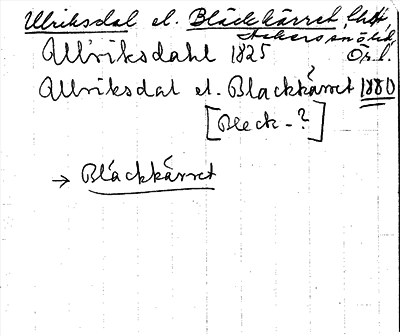 Ulriksdal el. Bläckkärret,
Ullriksdahl 1825
Ullriksdal el. Blackkärret 1880
[Bleck-?]
→ Bläckkärret